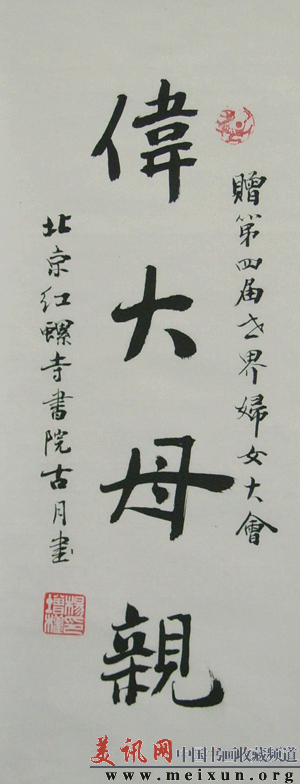 贈第四届世界婦女大會
偉大母親
北京红螺寺書院古月書
美讯网 中国书画收藏频道
www.meixun.org